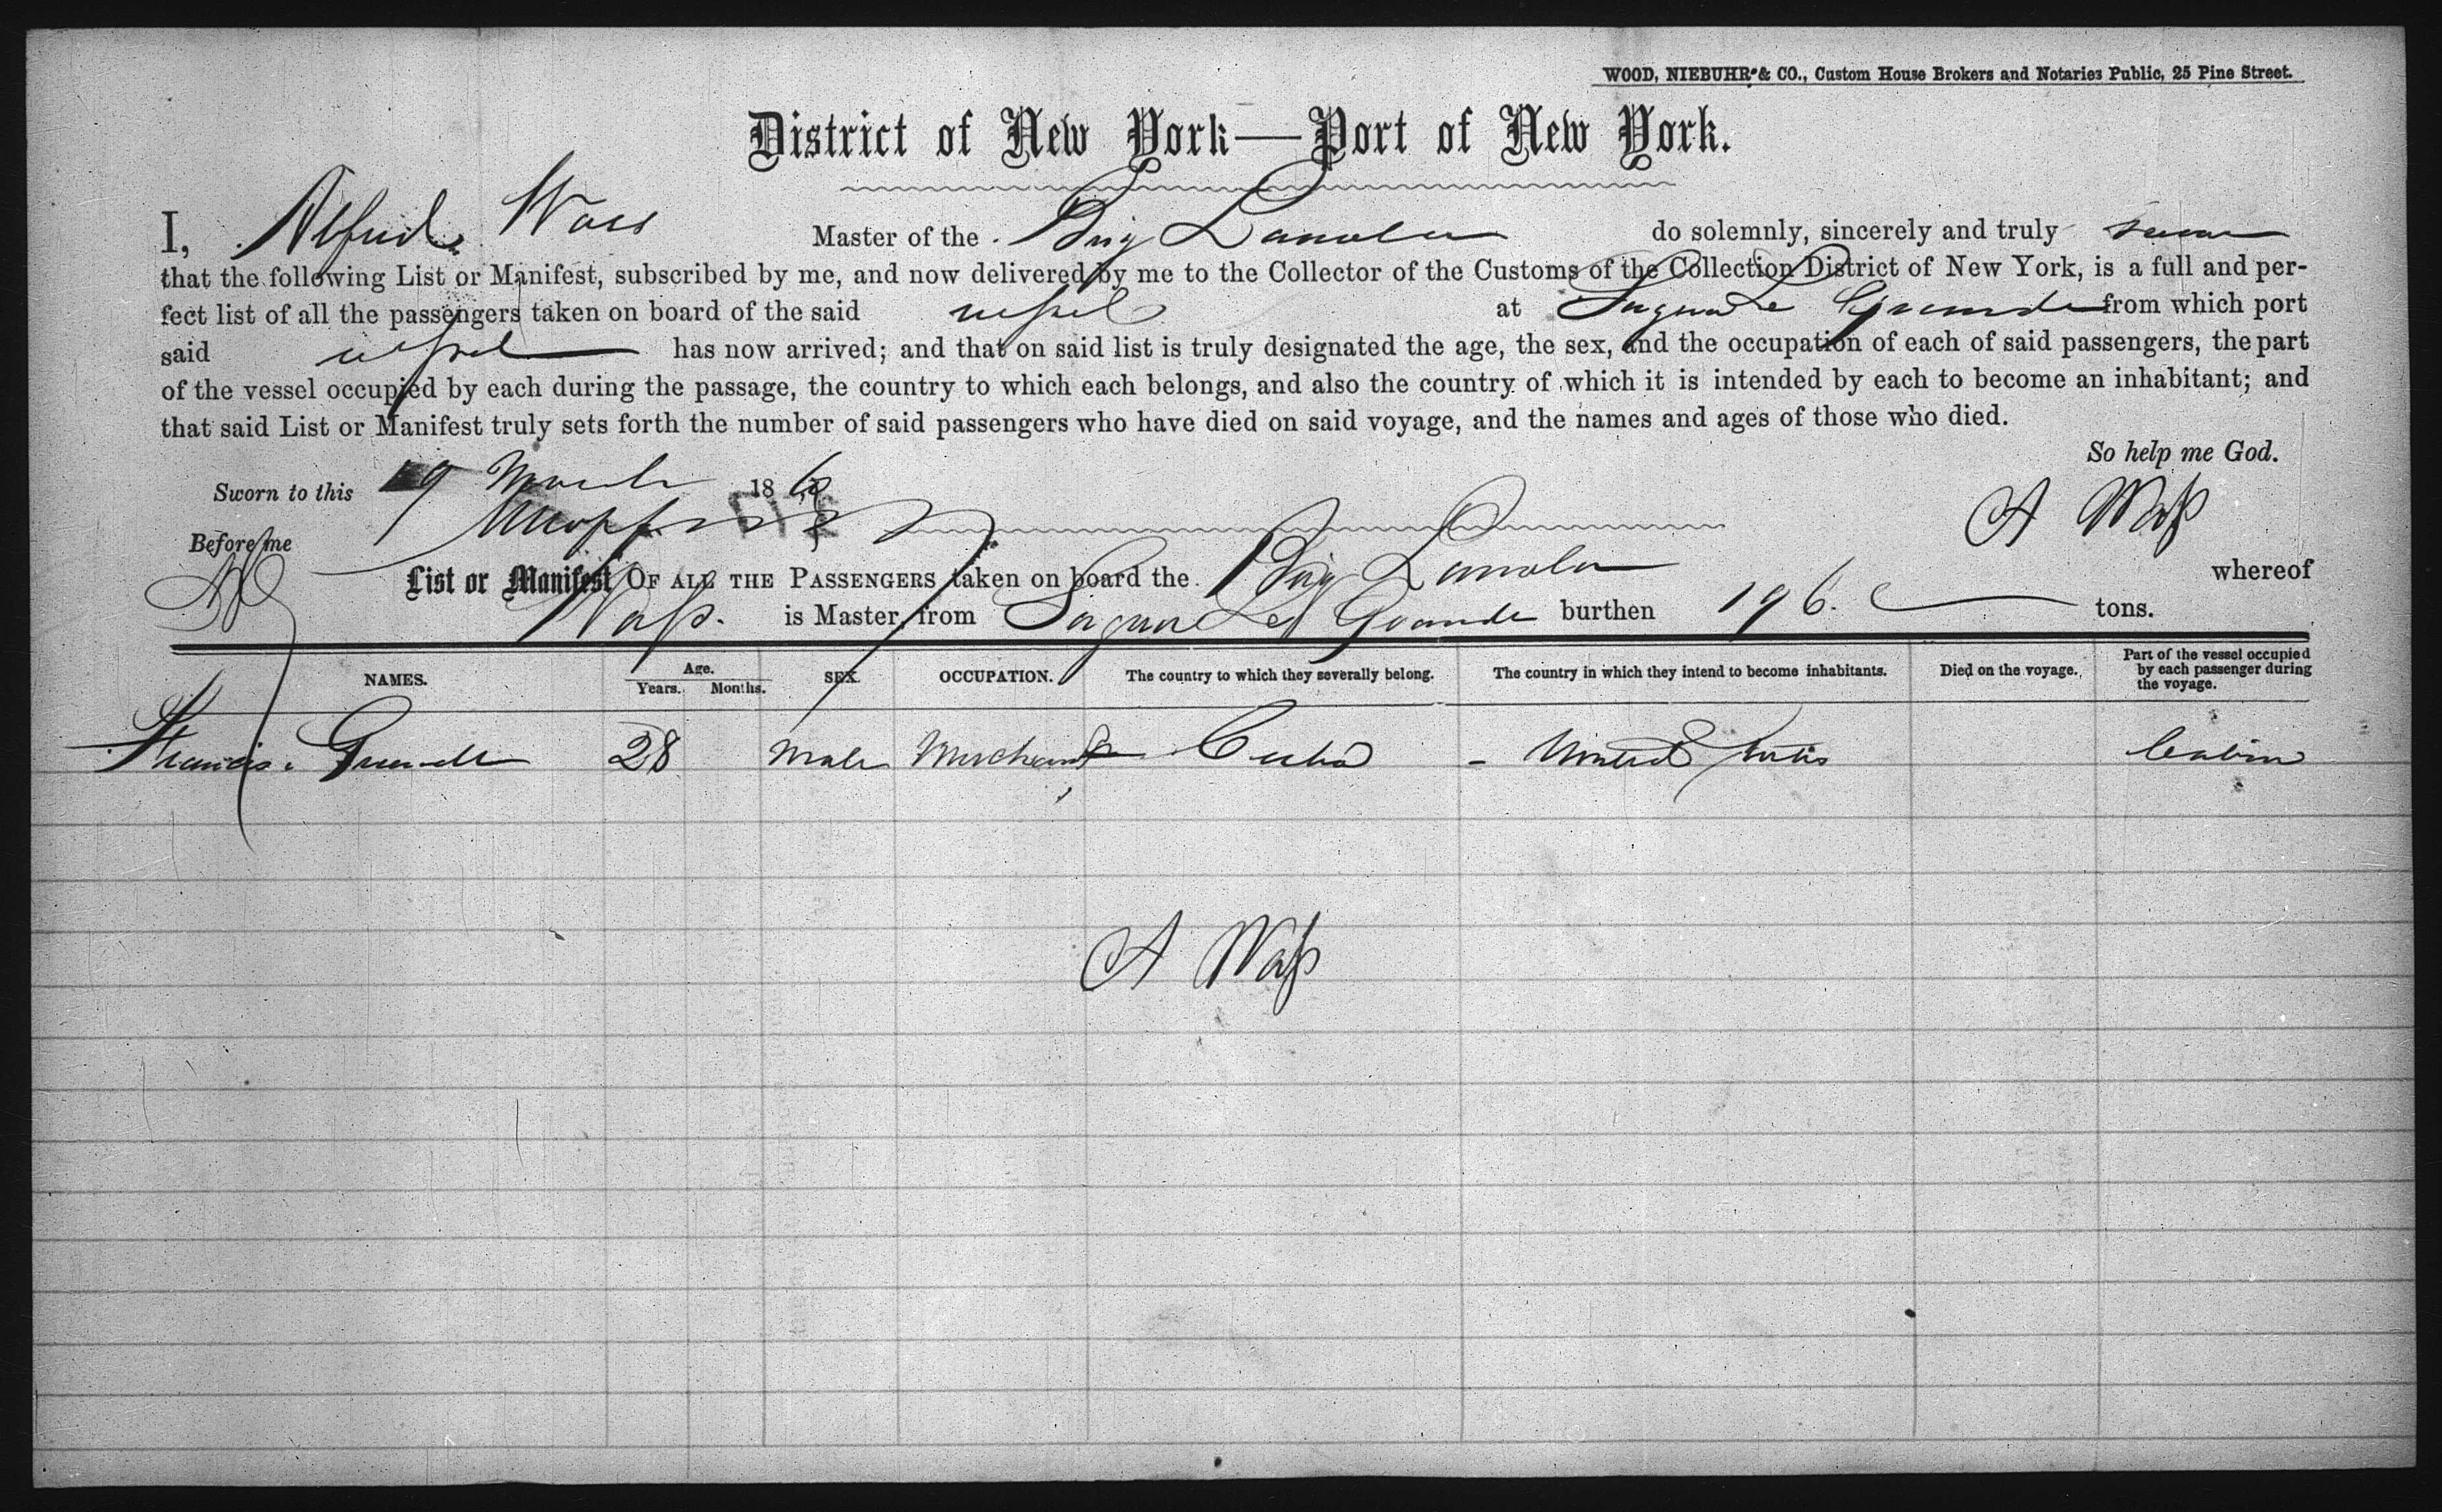 WOOD, NIEBUHR & CO., Custom House Brokers and Notaries Public, 25 Pine Street.
District of New York—Port of New York.
I, Alfred Wass Master of the Brig do solemnly, sincerely and truly swear
that the following List or Manifest, subscribed by me, and now delivered by me to the Collector of the Customs of the Collection District of New York, is a full and per-
fect list of all the passengers taken on board of the said vessel at Sagua Le Grande from which port
said vessel has now arrived; and that on said list is truly designated the age, the sex, and the occupation of each of said passengers, the part
of the vessel occupied by each during the passage, the country to which each belongs, and also the country of which it is intended by each to become an inhabitant; and
that said List or Manifest truly sets forth the number of said passengers who have died on said voyage, and the names and ages of those who died.
So help me God.
Sworn to this 19 March 186
A Wass
Before me
List or Manifest OF ALL THE PASSENGERS taken on board the Brig whereof
Wass. is Master, from Sagua Le Grande burthen 196. tons.
NAMES. Age. Years. Months. SEX. OCCUPATION. The country to which they severally belong. The country in which they intend to become inhabitants. Died on the voyage. Part of the vessel occupied by each passenger during the voyage.
Francis 28 Male Merchant Cuba - United States Cabin
A Wass